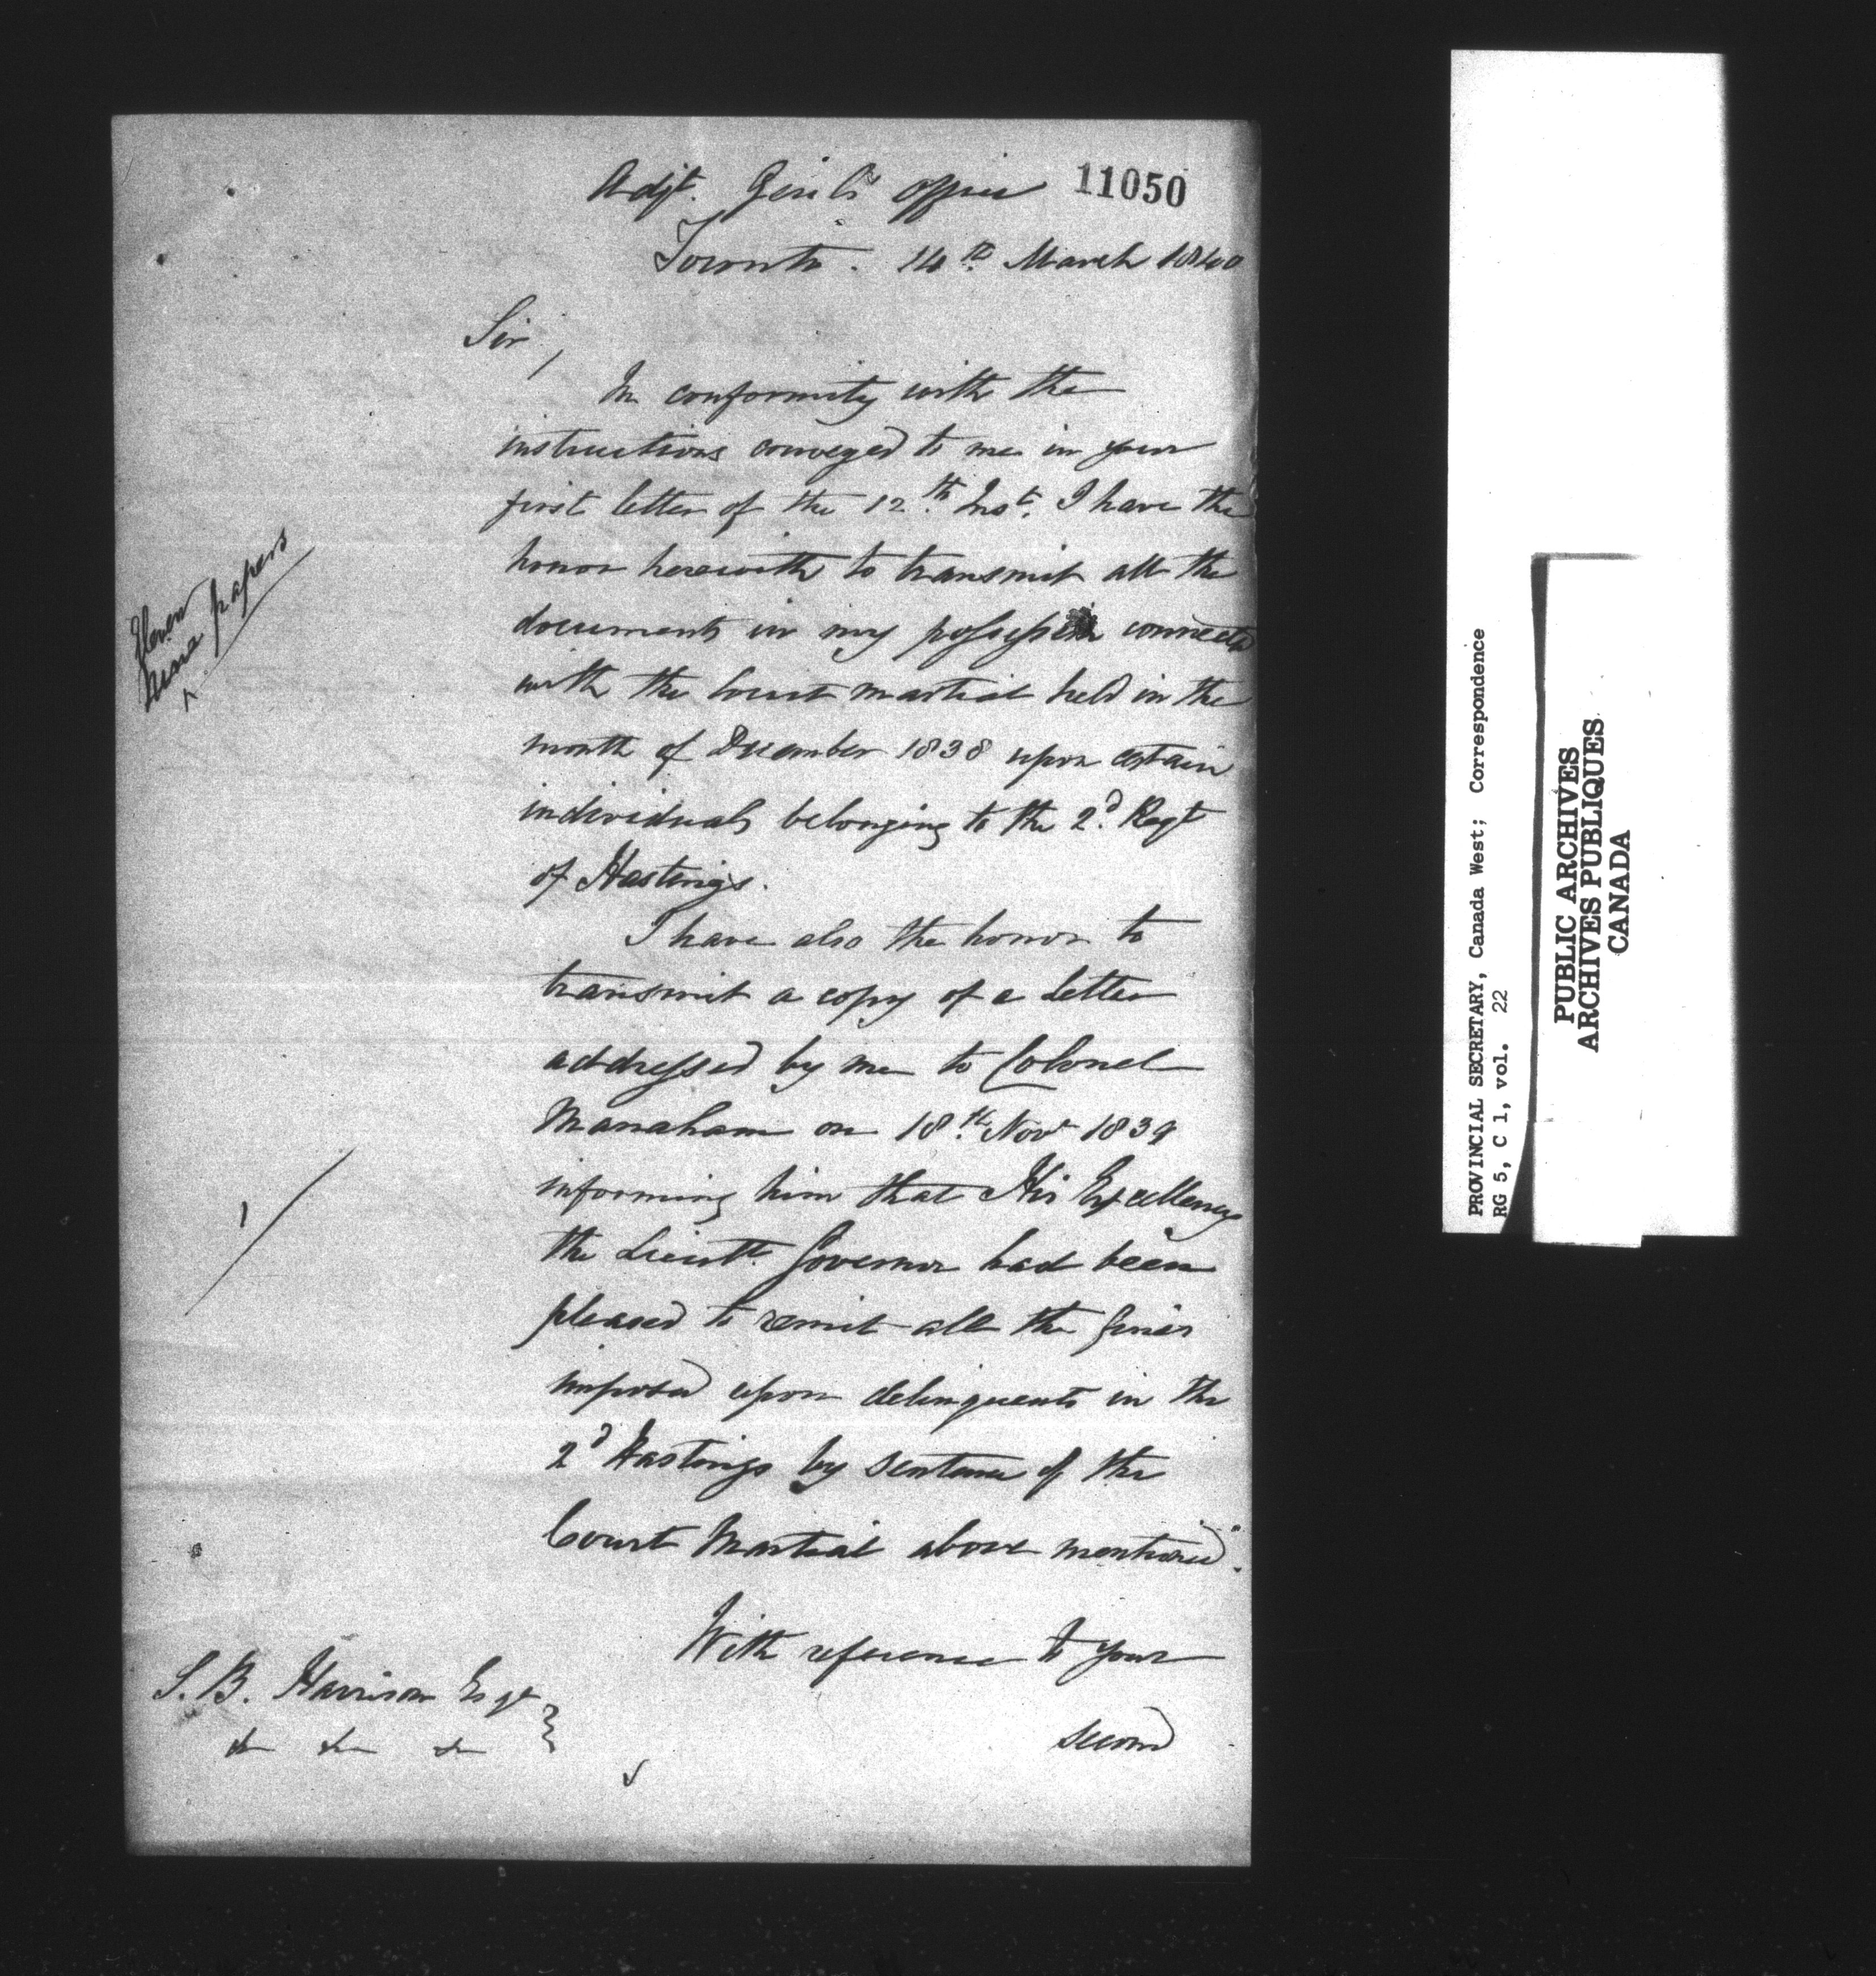 11050
Adjt. Genl's Office
Toronto. 14th March 1840
Sir,
In conformity with the
instructions conveyed to me in your
first letter of the 12th Inst. I have the
honor herewith to transmit all the
documents in my possession connected
with the Court Martial held in the
month of December 1838 upon certain
individuals belonging to the 2d. Regt
of Hastings.
I have also the honor to
transmit a copy of a Letter
addressed by me to Colonel
Manahan on 18th Novr 1839
informing him that His Excellency
the Lieutt. Governor had been
pleased to remit all the fines
imposed upon delinquents in the
2d Hastings by sentence of the
Court Martial above mentioned.
With reference to your
second
S. B. Harrison Esqr
&c &c &c
Eleven
papers
1
PROVINCIAL SECRETARY, Canada West; Correspondence
RG 5, C 1, vol. 22
PUBLIC ARCHIVES
ARCHIVES PUBLIQUES
CANADA